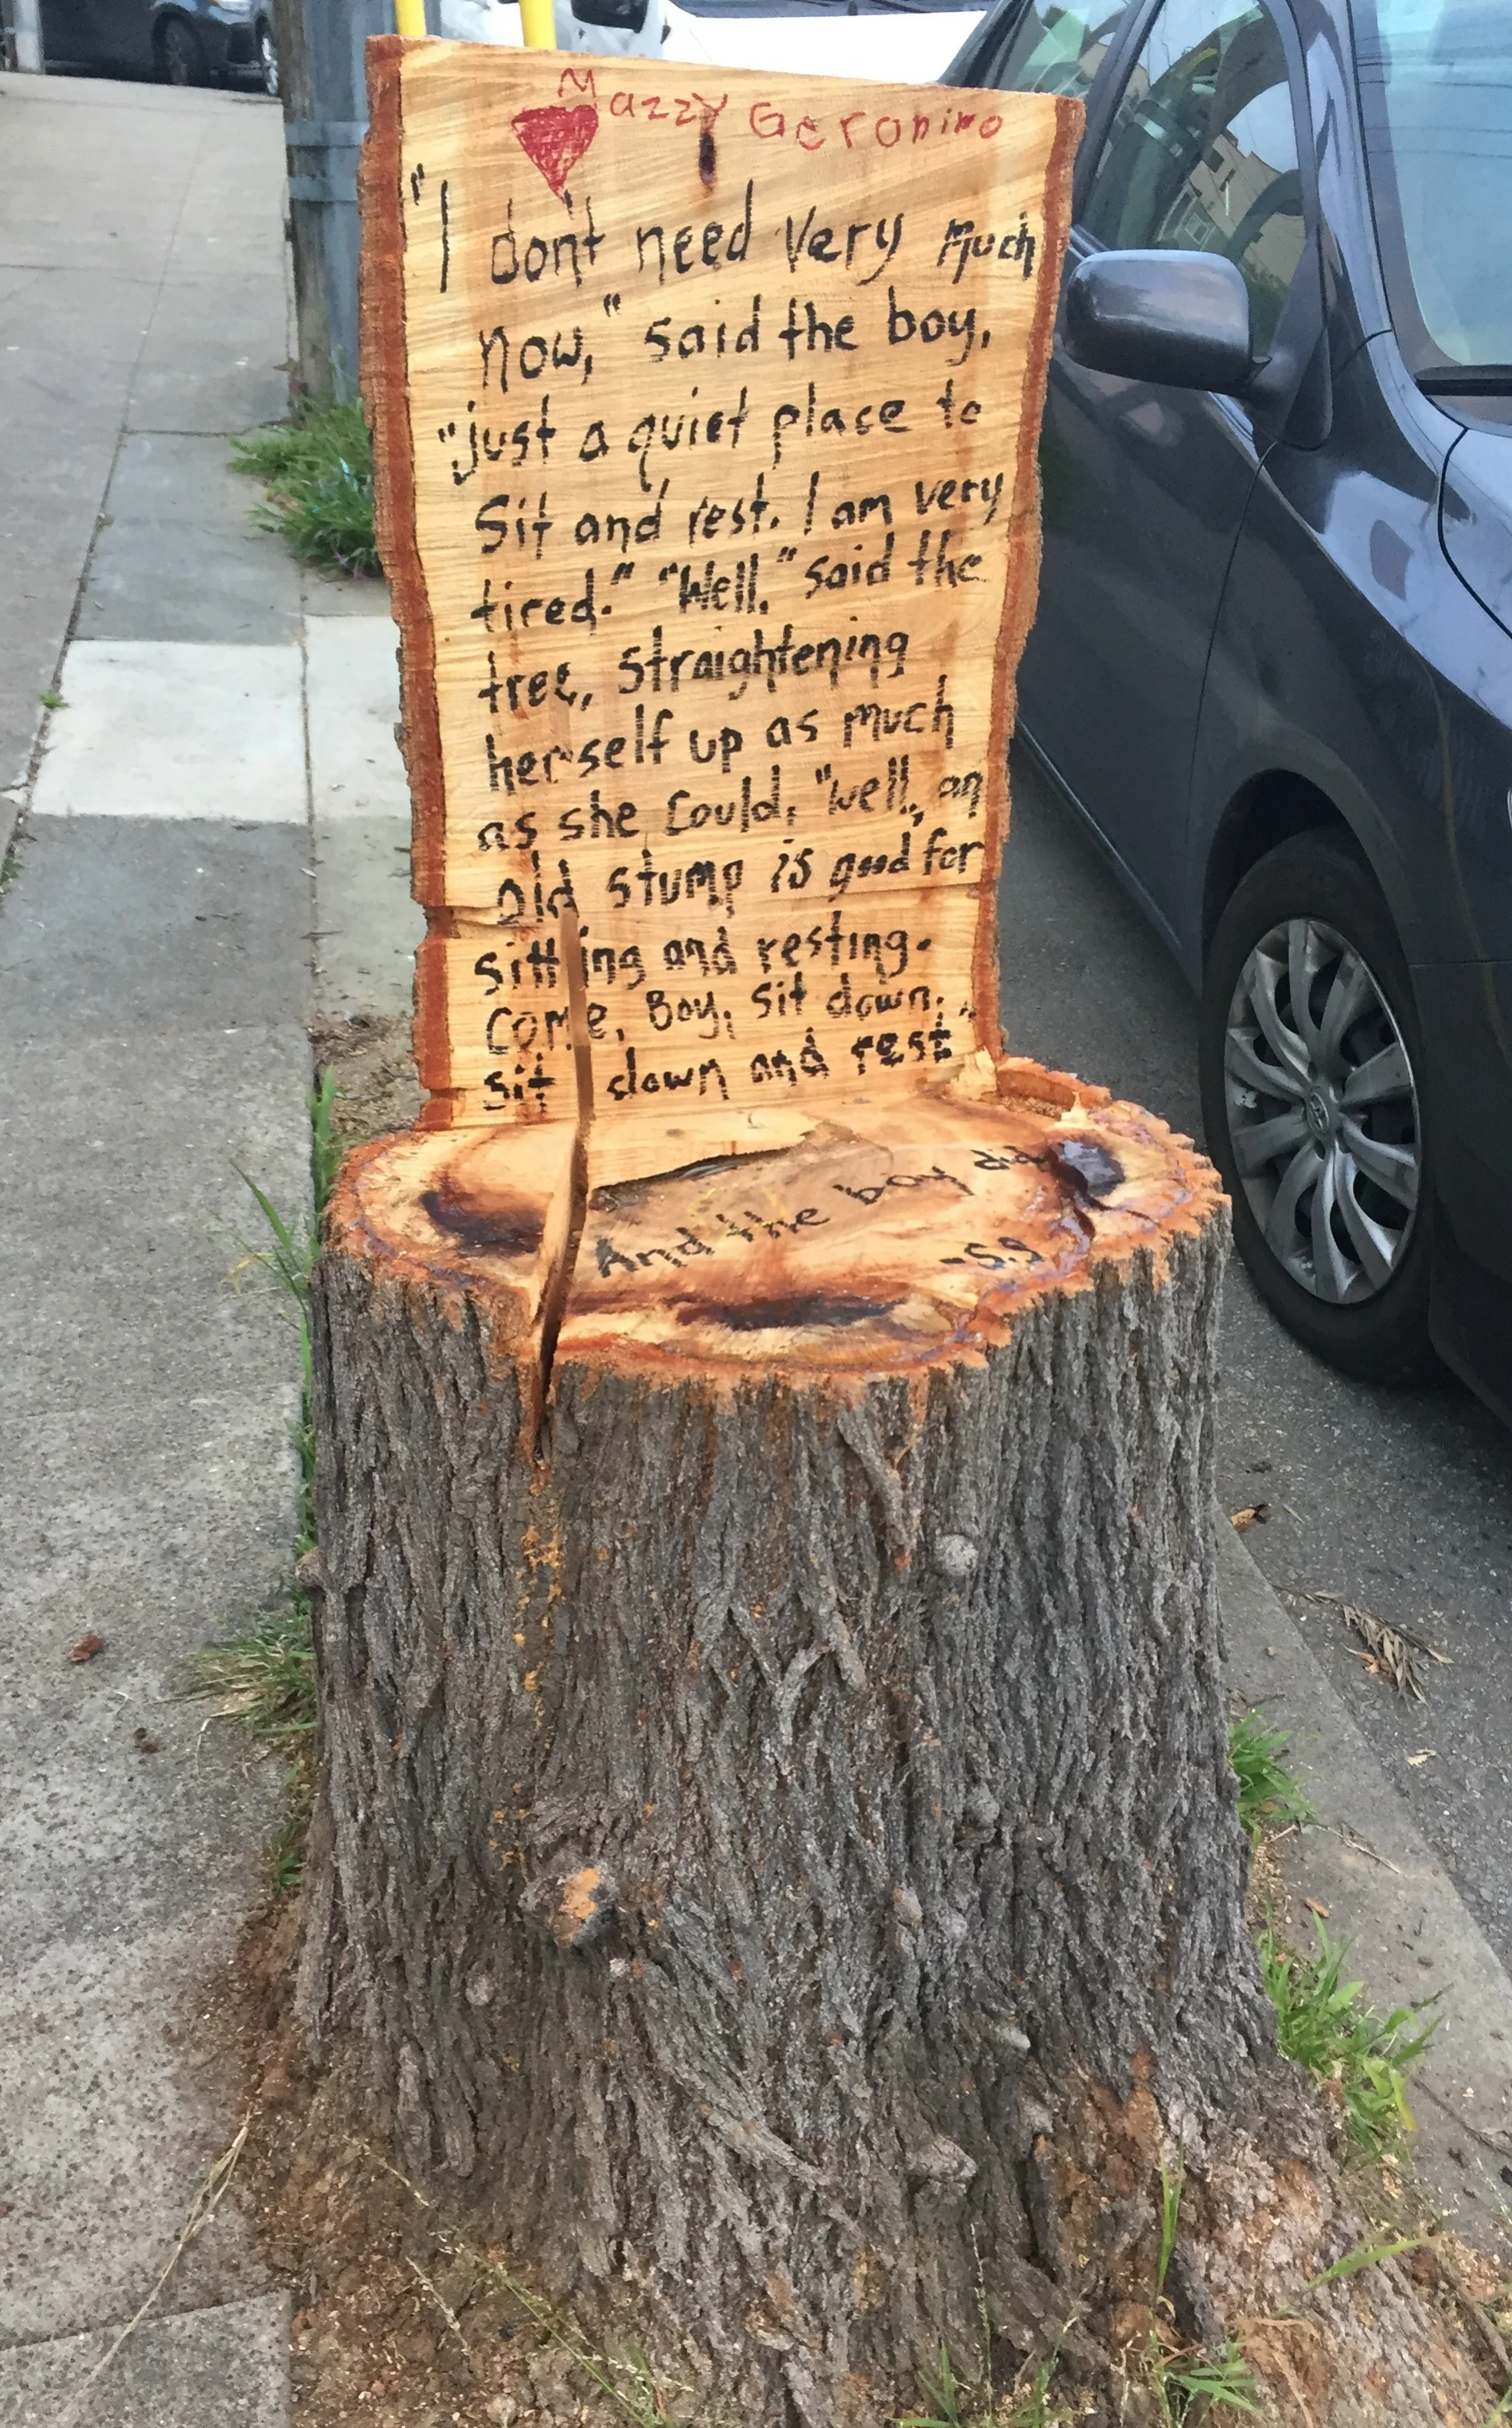 Mazzy Geronimo
"I don't need very much
now," said the boy,
"just a quiet place to
sit and rest. I am very
tired." "Well," said the
tree, straightening
herself up as much
as she could, "well, an
old stump is good for
sitting and resting.
Come, Boy, sit down,
sit down and rest."
And the boy did
-S.S